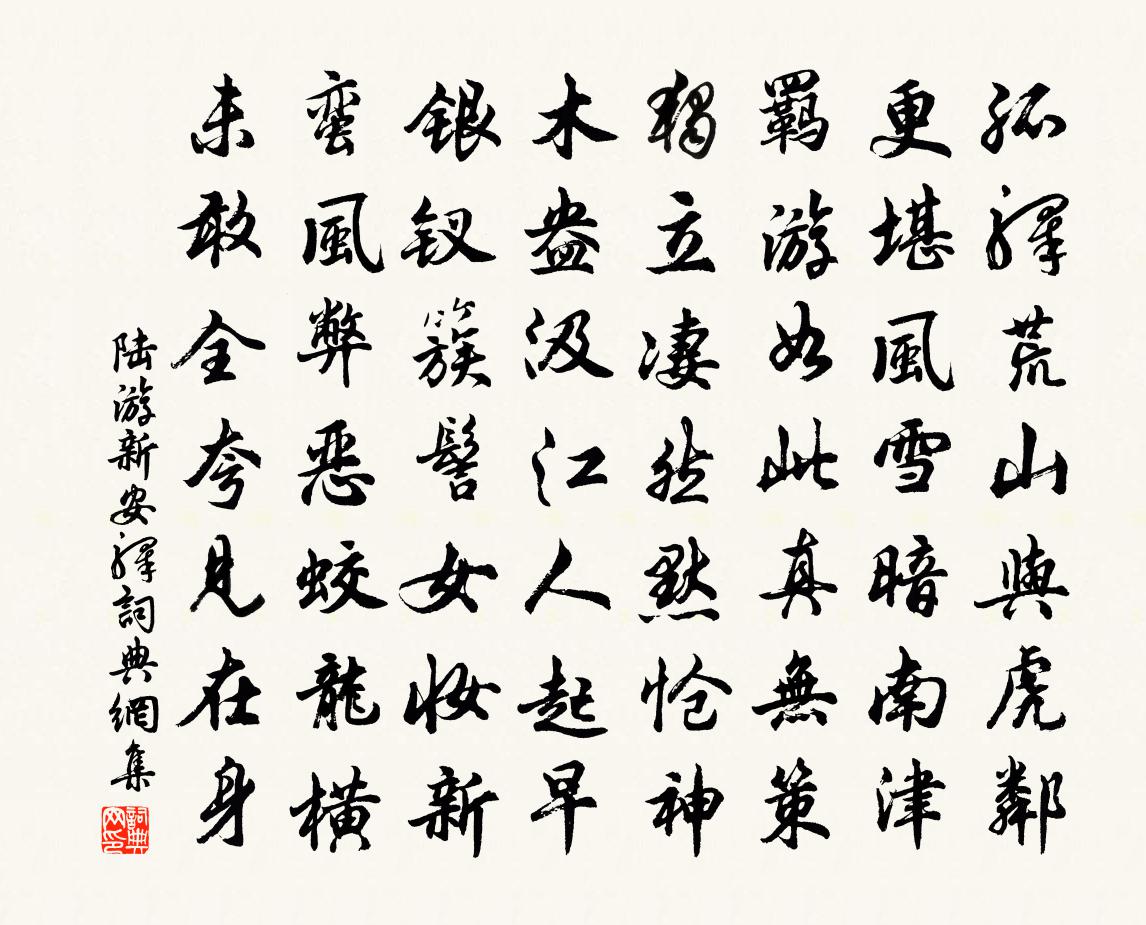 孤驛荒山與虎鄰
更堪風雪暗南津
羈游如此真無策
獨立凄然黙怆神
木盎汲江人起早
銀釵簇髻女妆新
蛮風弊惡蛟龍橫
未敢全夸見在身
陸游新安驛詞典網集
詞典网印